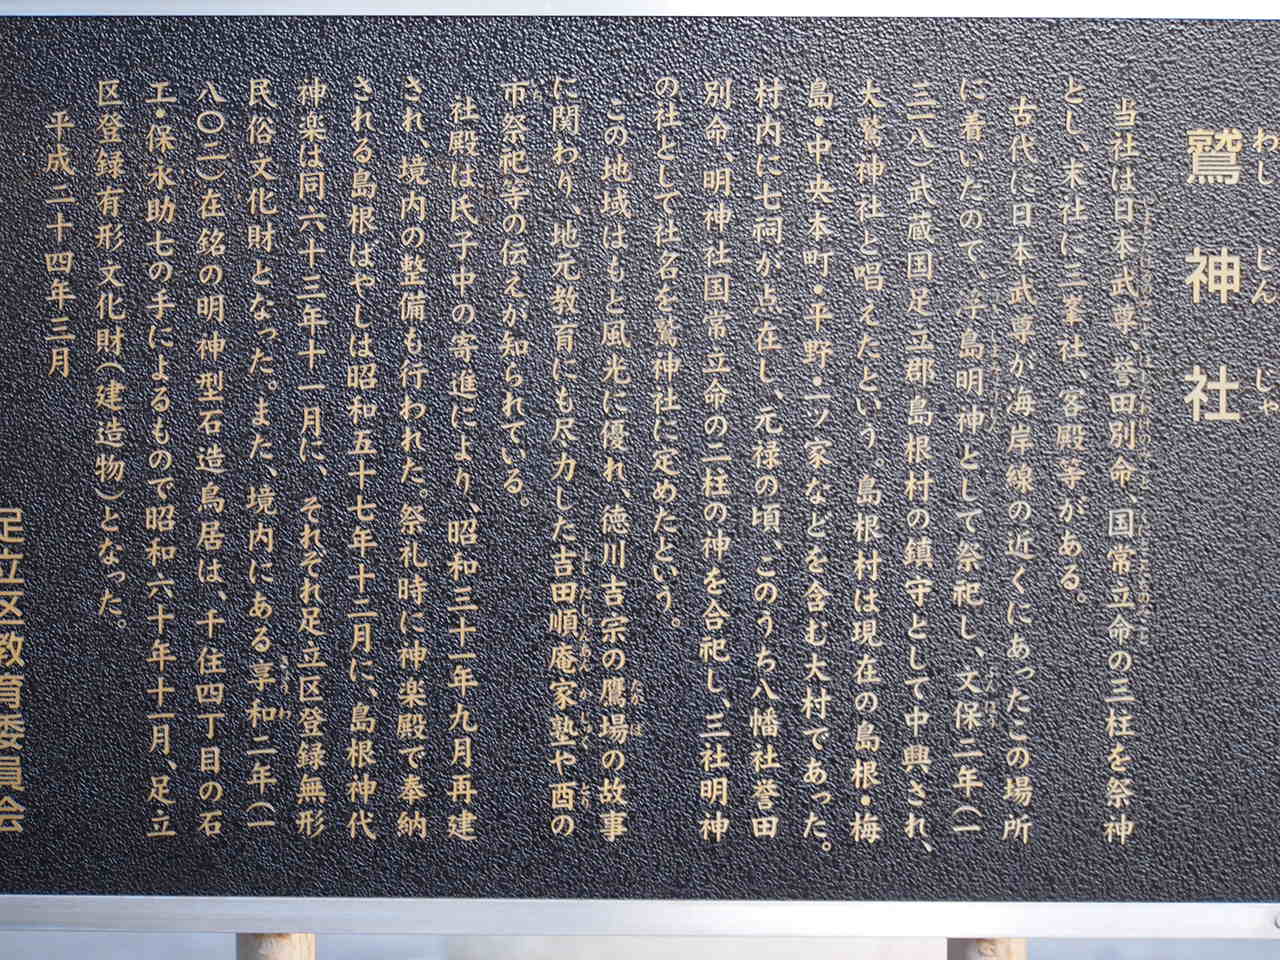 鷲神社
わしじんじゃ
当社は日本武尊、誉田別命、国常立命の三柱を祭神
とし、末社に三峯社、客殿等がある。
古代に日本武尊が海岸線の近くにあったこの場所
に着いたので、浮島明神として祭祀し、文保二年(一
三一八)武蔵国足立郡島根村の鎮守として中興され、
大鷲神社と唱えたという。島根村は現在の島根・梅
島・中央本町・平野・一ツ家などを含む大村であった。
村内に七祠が点在し、元禄の頃、このうち八幡社誉田
別命、明神社国常立命の二柱の神を合祀し、三社明神
の社として社名を鷲神社に定めたという。
この地域はもと風光に優れ、徳川吉宗の鷹場の故事
に関わり、地元教育にも尽力した吉田順庵家塾や酉の
市祭祀等の伝えが知られている。
社殿は氏子中の寄進により、昭和三十一年九月再建
され、境内の整備も行われた。祭礼時に神楽殿で奉納
される島根ばやしは昭和五十七年十二月に、島根神代
神楽は同六十三年十一月に、それぞれ足立区登録無形
民俗文化財となった。また、境内にある享和二年(一
八〇二)在銘の明神型石造鳥居は、千住四丁目の石
工・保永助七の手によるもので昭和六十年十一月、足立
区登録有形文化財(建造物)となった。
平成二十四年三月
足立区教育委員会